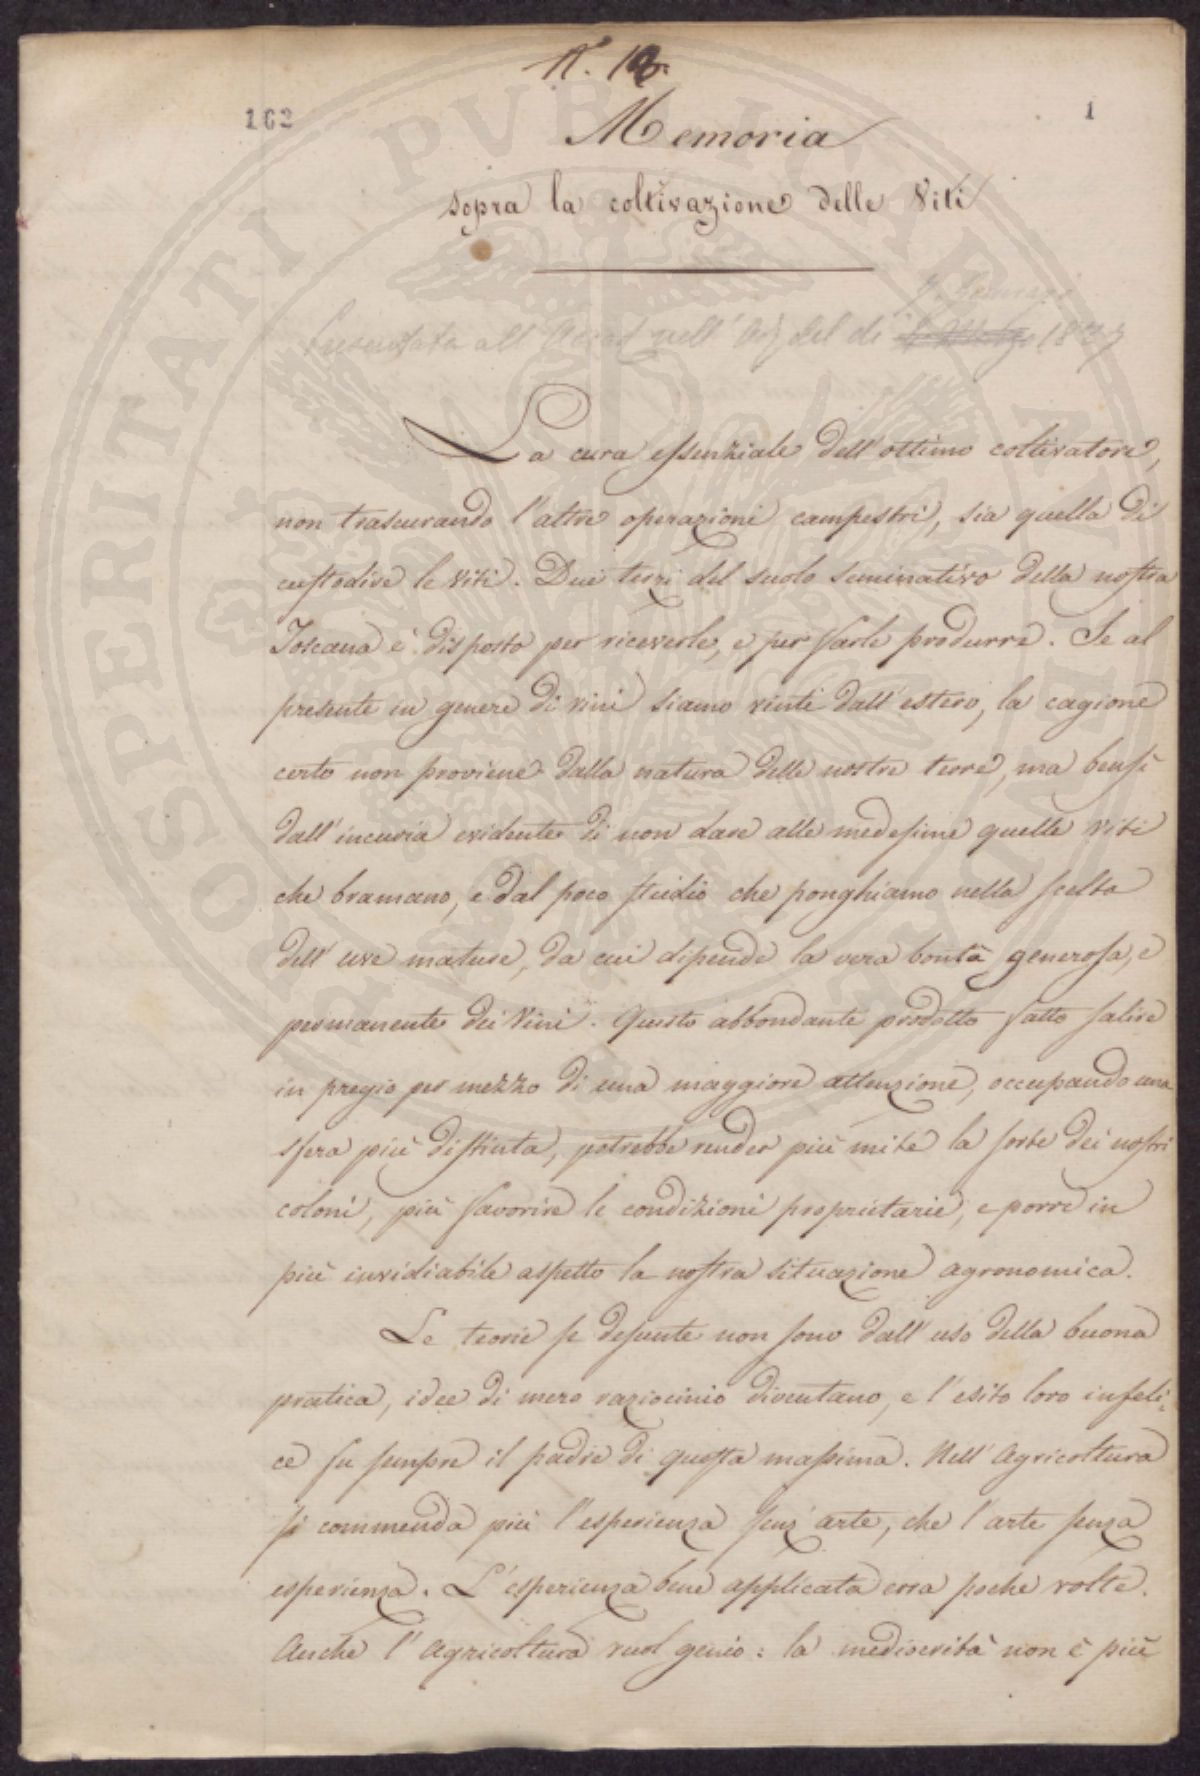 N.
162
1
Memoria
sopra la coltivazione delle Viti
Gennaio
Presentata all' Accad. nell' del di
La cura essenziale dell'ottimo coltivatore,
non trascurando l'altre operazioni campestri, sia quella di
custodire le viti. Due terzi del suolo seminativo della nostra
Toscana è disposto per riceverle, e per farle produrre. Se al
presente in genere di vini siamo vinti dall'estero, la cagione
certo non proviene dalla natura delle nostre terre, ma bensì
dall'incuria evidente di non dare alle medesime quelle viti
che bramano, e dal poco studio che ponghiamo nella scelta
dell'uve mature, da cui dipende la vera bontà generosa, e
permanente dei Vini. Questo abbondante prodotto fatto salire
in pregio per mezzo di una maggiore attenzione, occupando una
sfera più distinta, potrebbe render più mite la sorte dei nostri
coloni, più favorire le condizioni proprietarie, e porre in
più invidiabile aspetto la nostra situazione agronomica.
Le teorie se desunte non sono dall'uso della buona
pratica, idee di mero raziocinio diventano, e l'esito loro infeli-
ce fu sempre il padre di questa massima. Nell'Agricoltura
si commenda più l'esperienza senz'arte, che l'arte senza
esperienza. L'esperienza bene applicata erra poche volte.
Anche l'Agricoltura vuol genio: la mediocrità non è più
PROSPERITATI PVBLICAE AVGENDAE